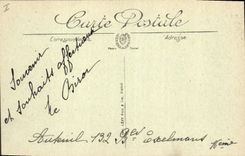 I
Carte Postale
Correspondance
Adresse
Souvenir
et souhaits affectueux
Le
Auteuil 132 Bd Exelmans